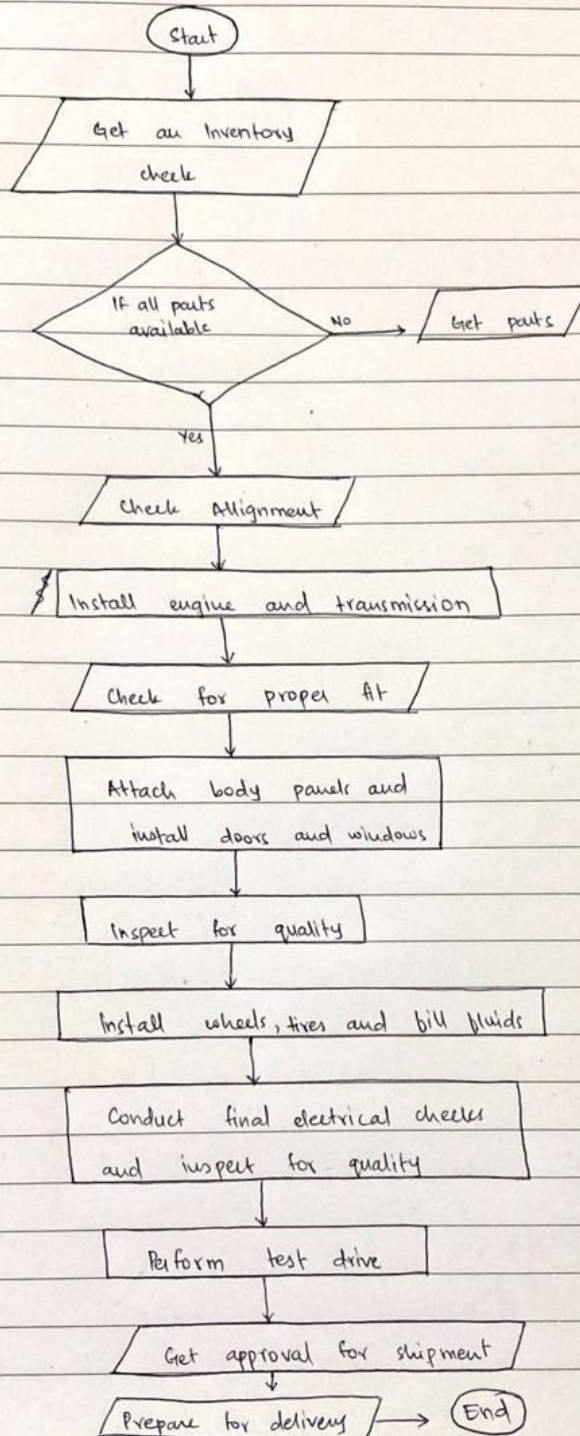 Start
Get an Inventory
check
If all parts
available
No
Get parts
Yes
Check Allignment
Install engine and transmission
Check for proper fit
Attach body panels and
install doors and windows
Inspect for quality
Install wheels, tires and fill fluids
Conduct final electrical checks
and inspect for quality
Perform test drive
Get approval for shipment
Prepare for delivery
End